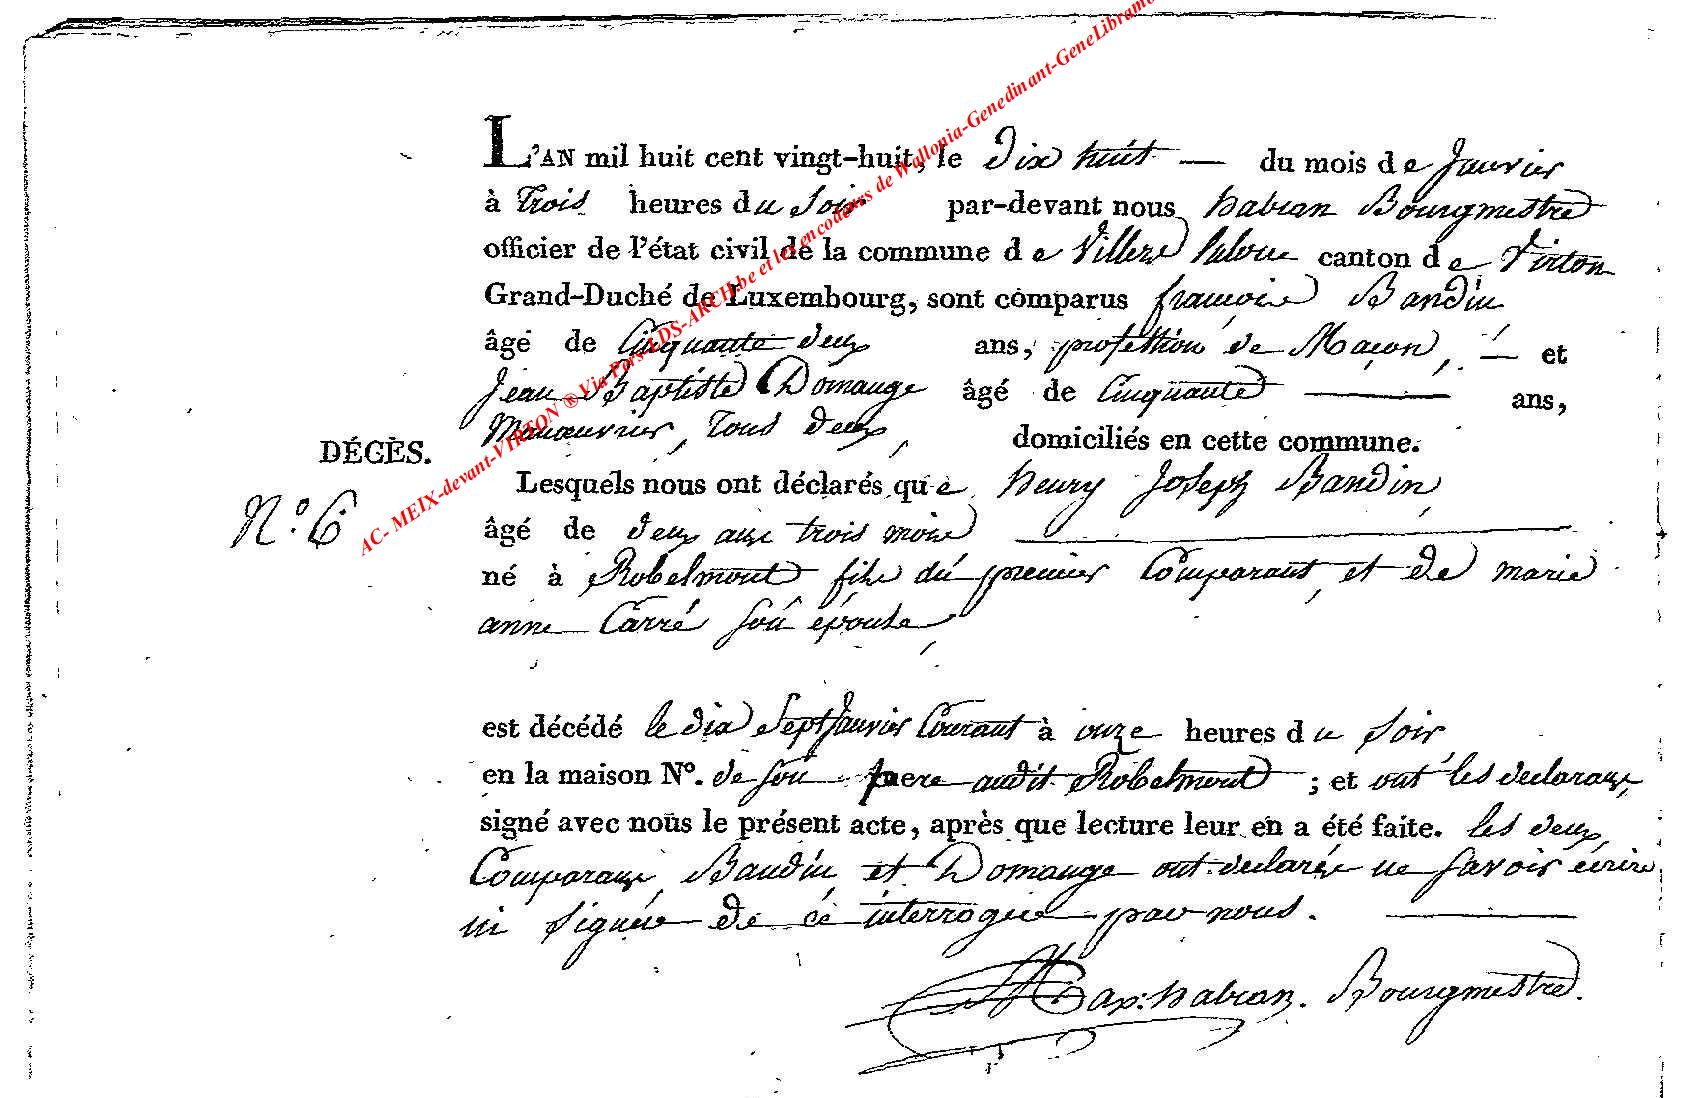 L'AN mil huit cent vingt-huit, le Dix huit — du mois de Janvier
à Trois heures du Soir par-devant nous habran Bourgmestre
officier de l'état civil de la commune de Villers laloue canton de Virton
Grand-Duché de Luxembourg, sont comparus francois Baudin
âgé de Cinquante deux ans, profession de Maçon, — et
Jean Baptiste Domange âgé de Cinquante — ans,
Manœuvrier, Tous deux, domiciliés en cette commune.
DÉCÈS.
Lesquels nous ont déclarés que henry Joseph Baudin,
N.° 6.
âgé de deux ans trois mois
né à Robelmont fils du premier Comparant, et de marie
anne Carré son épouse,
est décédé le dix Sept Janvier Courant à onze heures du Soir,
en la maison N°. de son pere audit Robelmont ; et ont les declarans,
signé avec nous le présent acte, après que lecture leur en a été faite. les deux
Comparans, Baudin et Domange ont declarés ne Savoir écrire
ni Signer de ce interrogés par nous.
Max: habran. Bourgmestre.
AC- MEIX-devant-VIRTON ® Via Pers-LDS-ARCH.be et les encodeurs de Wallonia-Genedinant-GeneLibramo